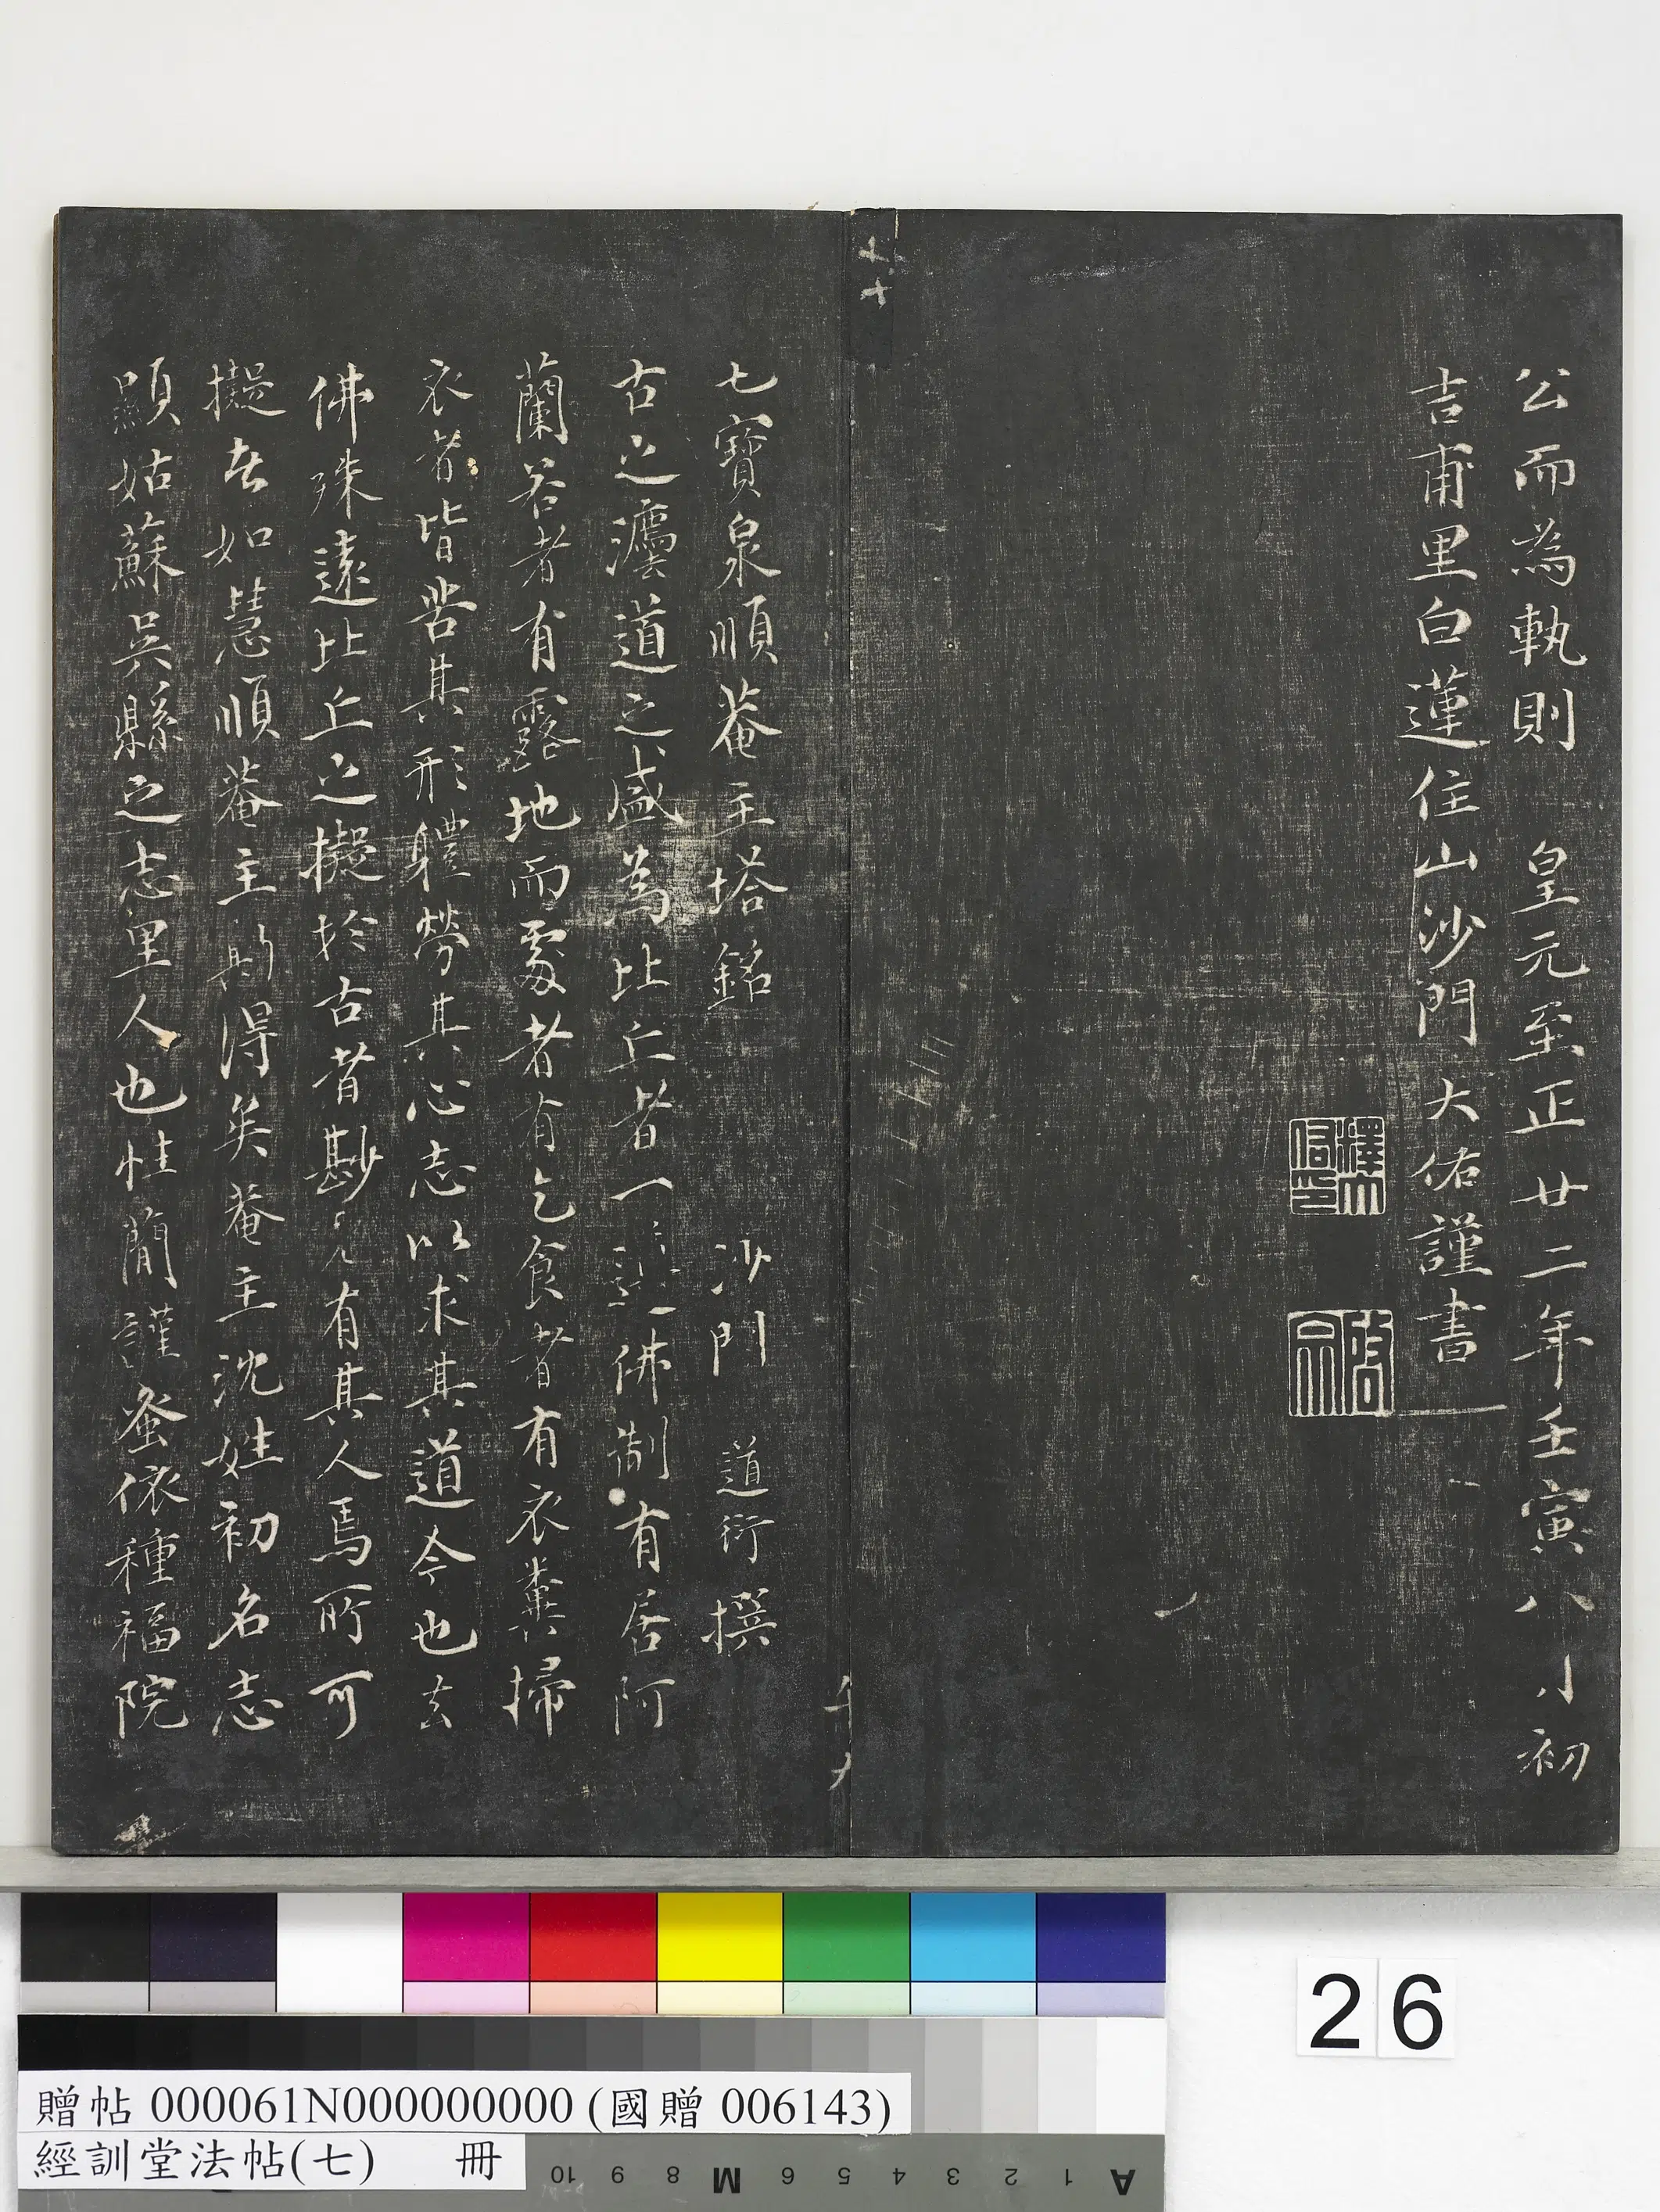 公而為執則　皇元至正廿二年壬寅八月初
吉甫里白蓮住山沙門大佑謹書
釋大佑印
啓宗
七十
七寶泉順菴主塔銘　沙門　道衍撰
古之瀍道之盛為比丘者一遵佛制有居阿
蘭若者有露地而處者有乞食者有衣糞掃
衣者皆苦其形體勞其心志以求其道今也去
佛殊遠比丘之擬於古者尠矣有其人焉所可
擬者如慧順菴主則得矣菴主沈姓初名志
顯姑蘇吳縣之志里人也性簡謹蚤依種福院
26
贈帖 000061N000000000 (國贈 006143)
經訓堂法帖(七)　冊
10 9 8 M 6 5 4 3 2 1 A